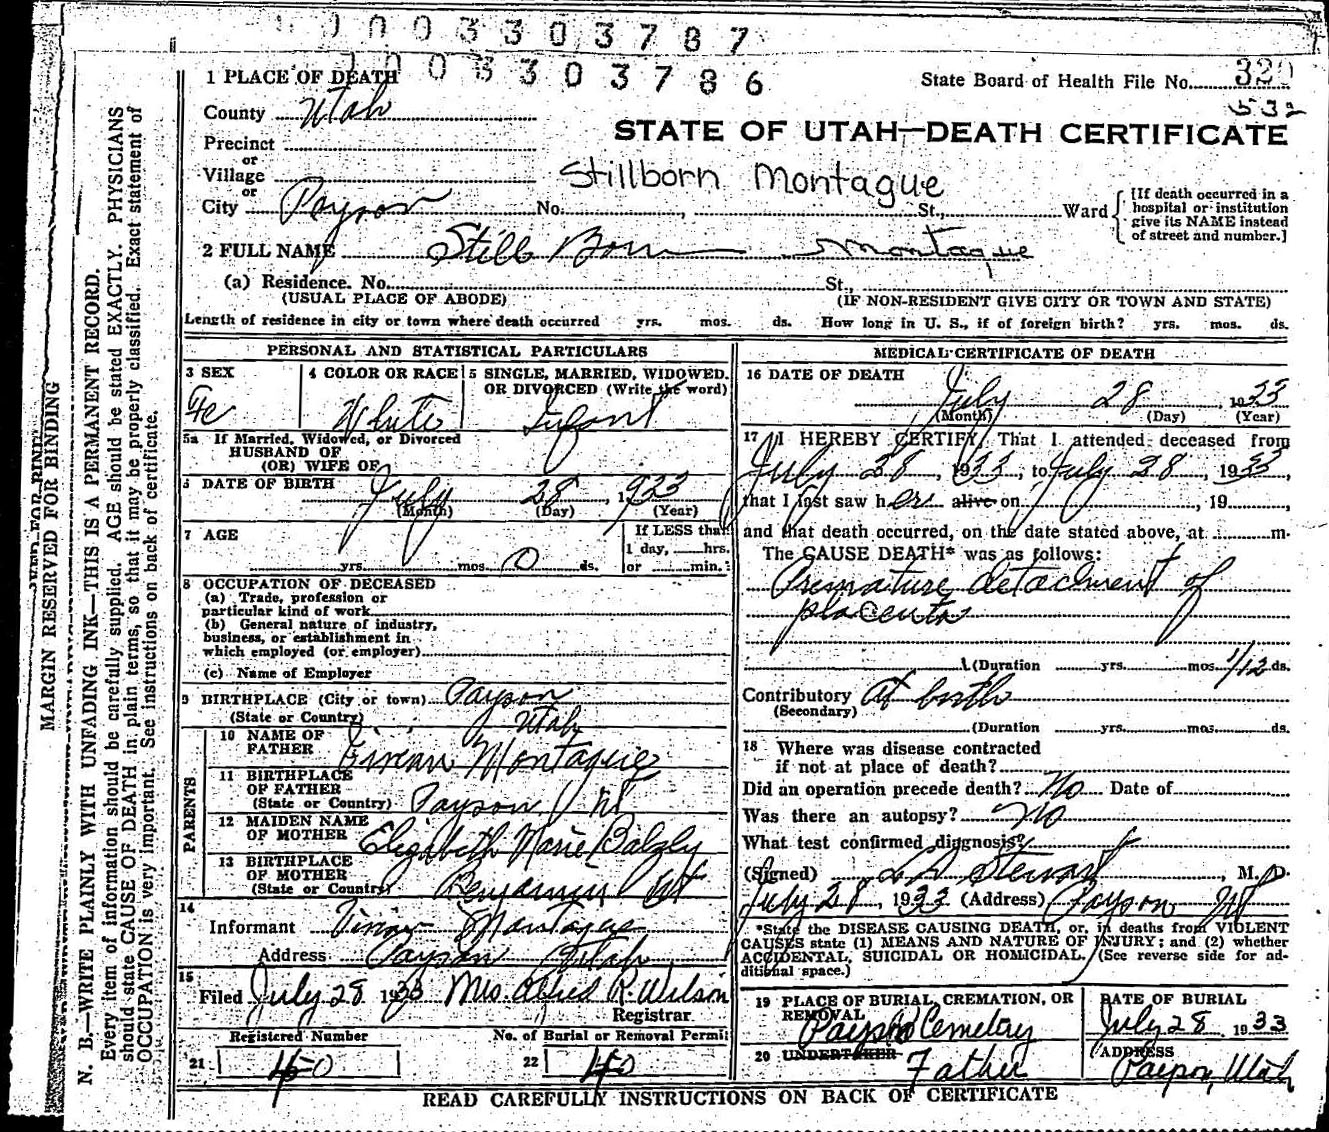 0003303787
003303786
State Board of Health File No. 320
532
1 PLACE OF DEATH
County Utah
STATE OF UTAH—DEATH CERTIFICATE
Precinct
or
Village
Stillborn Montague
or
City Payson No. St., Ward
[If death occurred in a hospital or institution give its NAME instead of street and number.]
2 FULL NAME Still Born Montague
(a) Residence. No. St.,
(USUAL PLACE OF ABODE) (IF NON-RESIDENT GIVE CITY OR TOWN AND STATE)
Length of residence in city or town where death occurred yrs. mos. ds. How long in U. S., if of foreign birth? yrs. mos. ds.
PERSONAL AND STATISTICAL PARTICULARS
3 SEX
Fe
4 COLOR OR RACE
White
5 SINGLE, MARRIED, WIDOWED.
OR DIVORCED (Write the word)
Infant
5a If Married, Widowed, or Divorced
HUSBAND OF
(OR) WIFE OF
6 DATE OF BIRTH July 28, 1933
(Month) (Day) (Year)
7 AGE
yrs. mos. 0 ds.
If LESS than
1 day, hrs.
or min.
8 OCCUPATION OF DECEASED
(a) Trade, profession or
particular kind of work
(b) General nature of industry,
business, or establishment in
which employed (or employer)
(c) Name of Employer
9 BIRTHPLACE (City or town) Payson
(State or Country) Utah
PARENTS
10 NAME OF
FATHER Montague
11 BIRTHPLACE
OF FATHER
(State or Country) Payson Ut
12 MAIDEN NAME
OF MOTHER Elizabeth Marie Balzly
13 BIRTHPLACE
OF MOTHER
(State or Country) Benjamin Ut
14
Informant Montague
Address Payson Utah
15
Filed July 28 1933 Mrs. R. Wilson
Registrar
Registered Number No. of Burial or Removal Permit
21 22 40
MEDICAL CERTIFICATE OF DEATH
16 DATE OF DEATH
July 28 1933
(Month) (Day) (Year)
17 I HEREBY CERTIFY, That I attended deceased from
July 28, 1933, to July 28, 1933,
that I last saw her alive on , 19
and that death occurred, on the date stated above, at m.
The CAUSE DEATH* was as follows:
Premature detachment of
placenta
(Duration yrs. mos. 1/12 ds.
Contributory At birth
(Secondary)
(Duration yrs. mos. ds.
18 Where was disease contracted
if not at place of death?
Did an operation precede death? No Date of
Was there an autopsy? No
What test confirmed diagnosis?
(Signed) Stewart, M. D.
July 28, 1933 (Address) Payson Ut
*State the DISEASE CAUSING DEATH, or, in deaths from VIOLENT
CAUSES state (1) MEANS AND NATURE OF INJURY; and (2) whether
ACCIDENTAL, SUICIDAL OR HOMICIDAL. (See reverse side for ad-
ditional space.)
19 PLACE OF BURIAL, CREMATION, OR
REMOVAL
Payson Cemetery
DATE OF BURIAL
July 28 1933
20 UNDERTAKER
Father
ADDRESS
Payson, Utah
READ CAREFULLY INSTRUCTIONS ON BACK OF CERTIFICATE
MARGIN RESERVED FOR BINDING
N. B.—WRITE PLAINLY WITH UNFADING INK—THIS IS A PERMANENT RECORD.
Every item of information should be carefully supplied. AGE should be stated EXACTLY. PHYSICIANS
should state CAUSE OF DEATH in plain terms, so that it may be properly classified. Exact statement of
OCCUPATION is very important. See instructions on back of certificate.